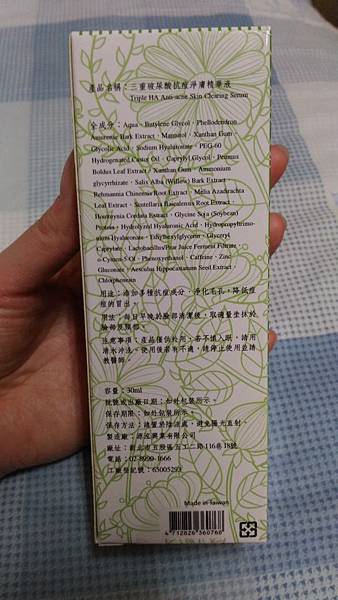 產品名稱：三重玻尿酸抗痘淨膚精華液
Triple HA Anti-acne Skin Clearing Serum
全成分：Aqua、Butylene Glycol、Phellodendron
Amurense Bark Extract、Mannitol、Xanthan Gum
Glycolic Acid、Sodium Hyaluronate、PEG-60
Hydrogenated Castor Oil、Caprylyl Glycol、Peumus
Boldus Leaf Extract、Xanthan Gum、Ammonium
glycyrrhizate、Salix Alba (Willow) Bark Extract、
Rehmannia Chinensis Root Extract、Melia Azadirachta
Leaf Extract、Scutellaria Baicalensis Root Extract、
Houttuynia Cordata Extract、Glycine Soja (Soybean)
Protein、Hydrolyzed Hyaluronic Acid、Hydroxypropyltrimo-
nium Hyaluronate、Ethylhexylglycerin、Glyceryl
Caprylate、Lactobacillus/Pear Juice Ferment Filtrate、
o-Cymen-5-Ol、Phenoxyethanol、Caffeine、Zinc
Gluconate、Aesculus Hippocastanum Seed Extract、
Chlorphenesin
用途：添加多種抗痘成分，淨化毛孔，降低痘
痘的冒出。
用法：每日早晚於臉部清潔後，取適量塗抹於
臉部及頸部。
注意事項：產品僅供外用，若不慎入眼，請用
清水沖洗。使用後若有不適，請停止使用並請
教醫師。
容量：30ml
批號或出廠日期：如外包裝所示。
保存期限：如外包裝所示。
保存方法：請置於陰涼處，避免陽光直射。
製造廠：源泓興業有限公司
廠址：新北市五股區五工二路116巷18號
電話：02-8990-1666
工廠登記號：65005293
Made in Taiwan
4 712826 360766